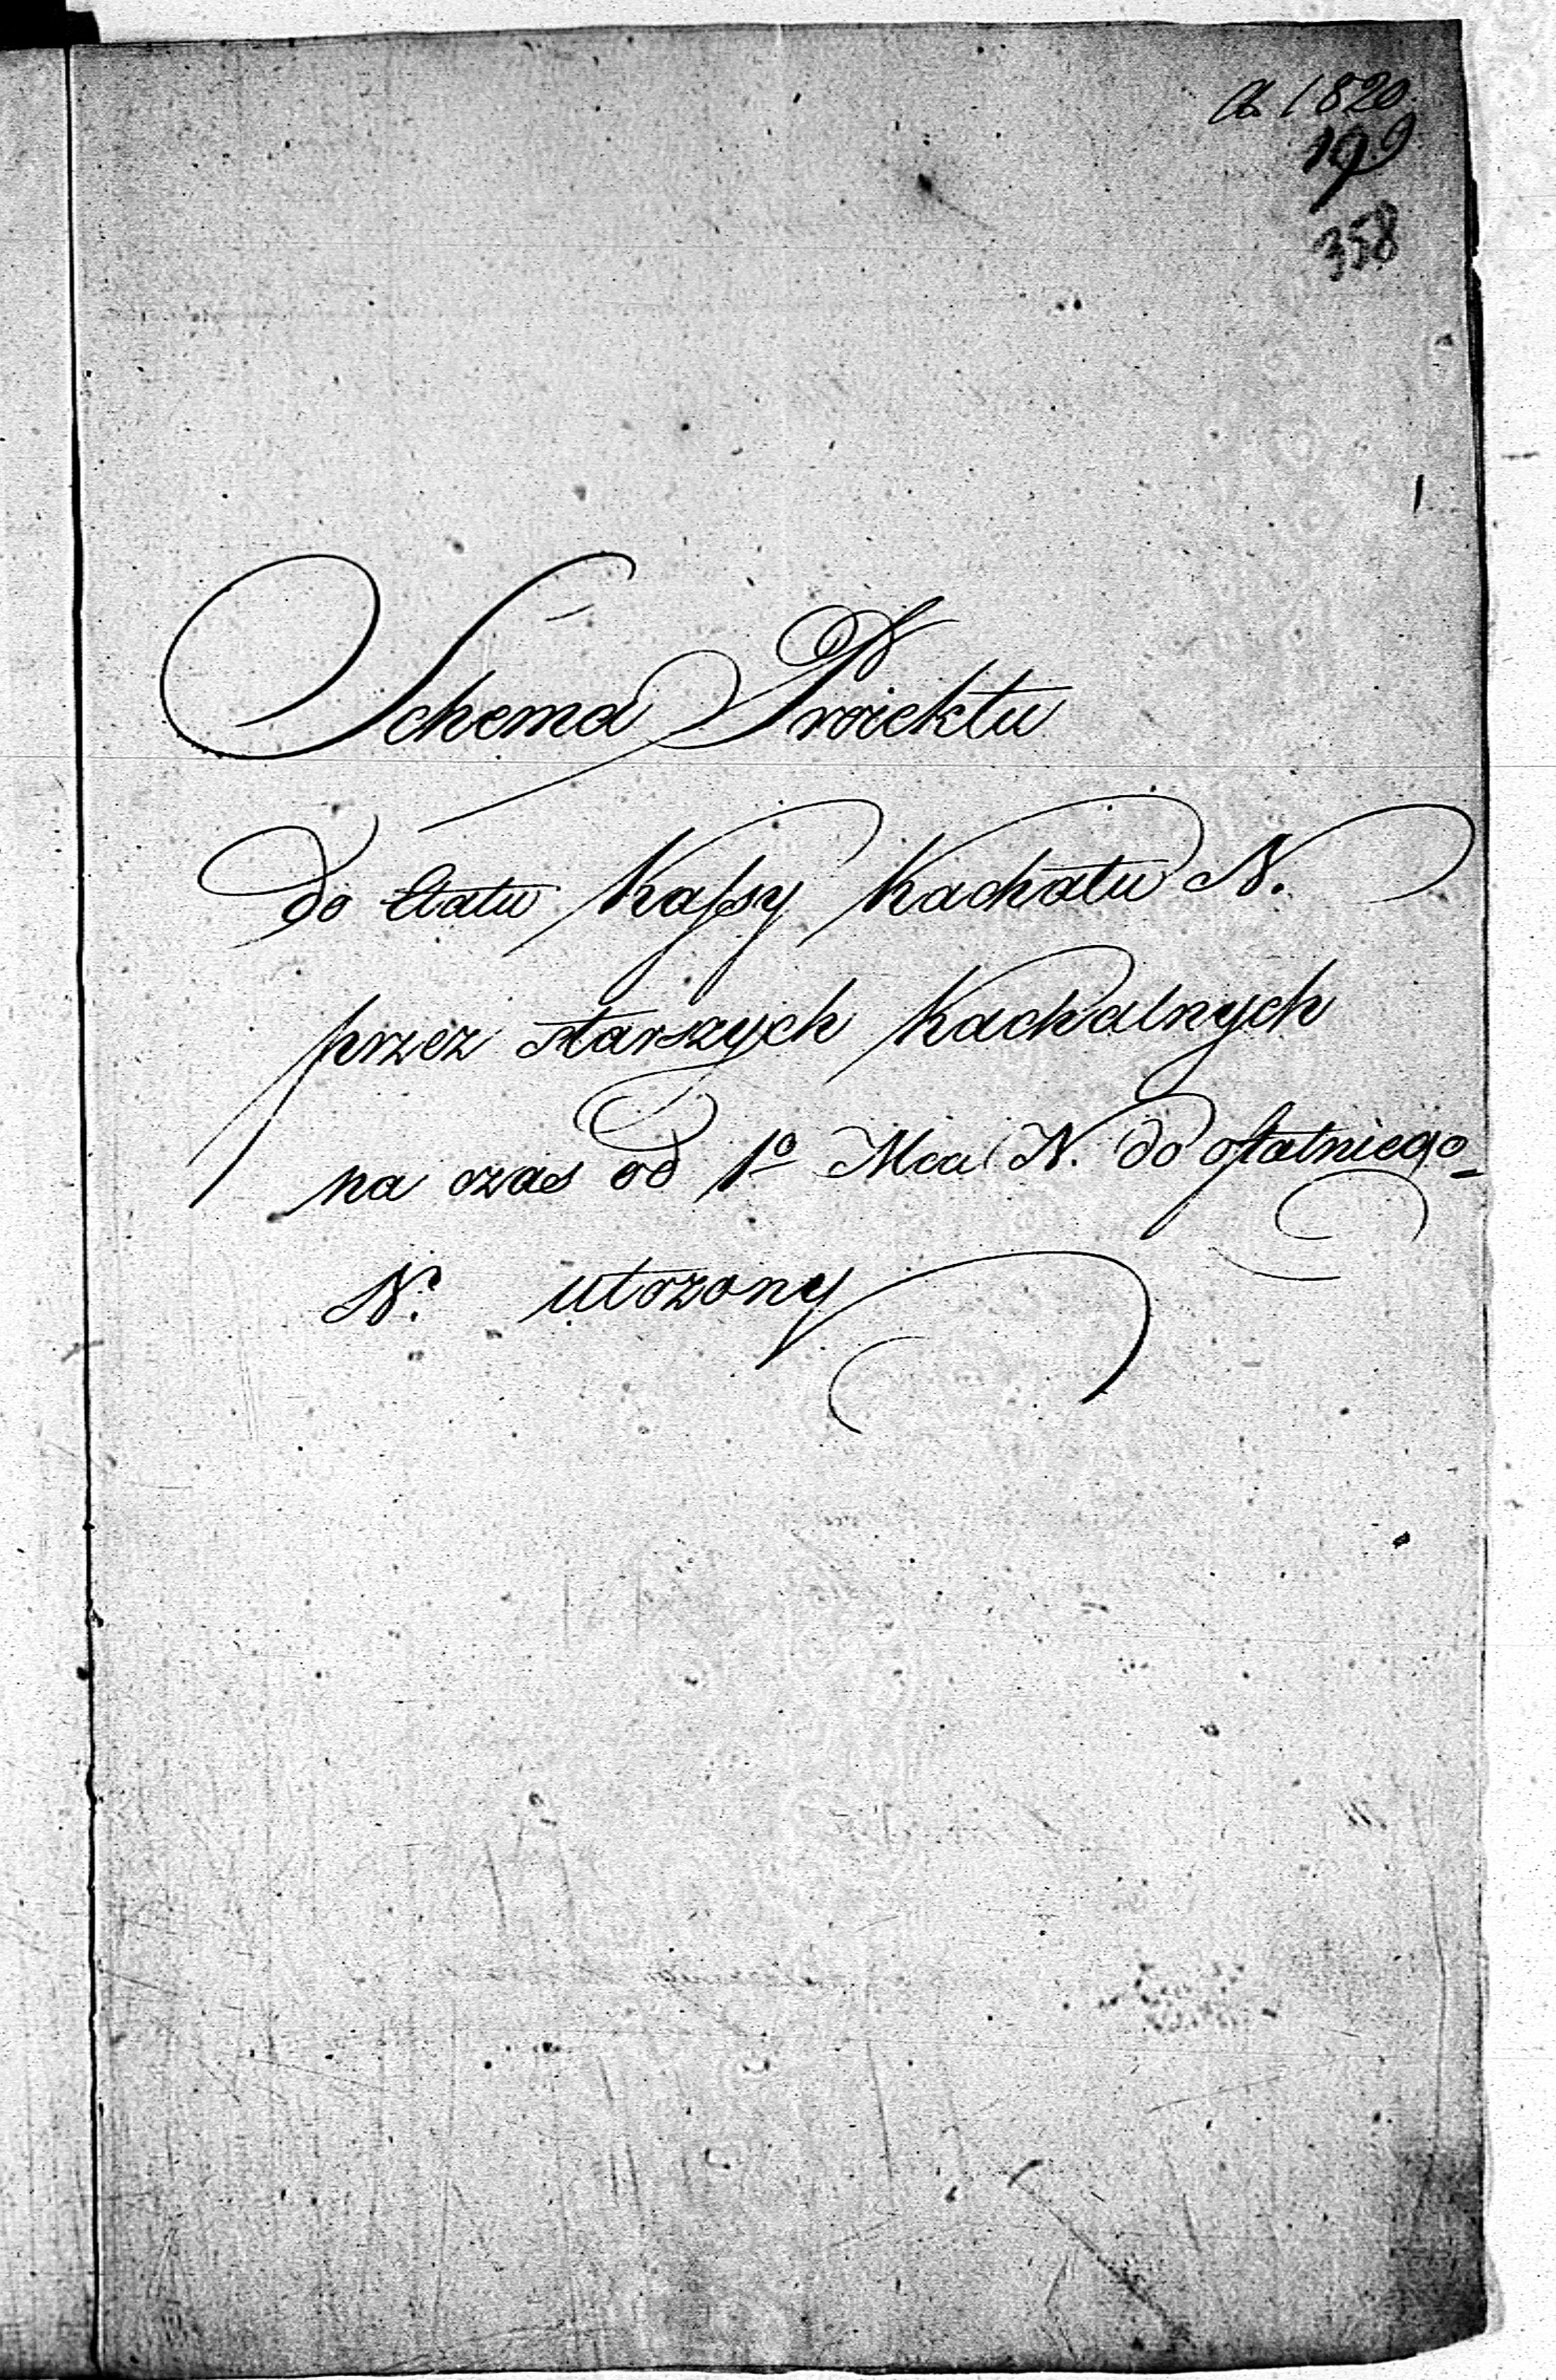 A. 1820.
199
358
1
Schema Proiektu
do Etatu Kassy Kachału N.
przez starszych Kachalnych
na czas od 1º Mca N. do ostatniego
N. utozony